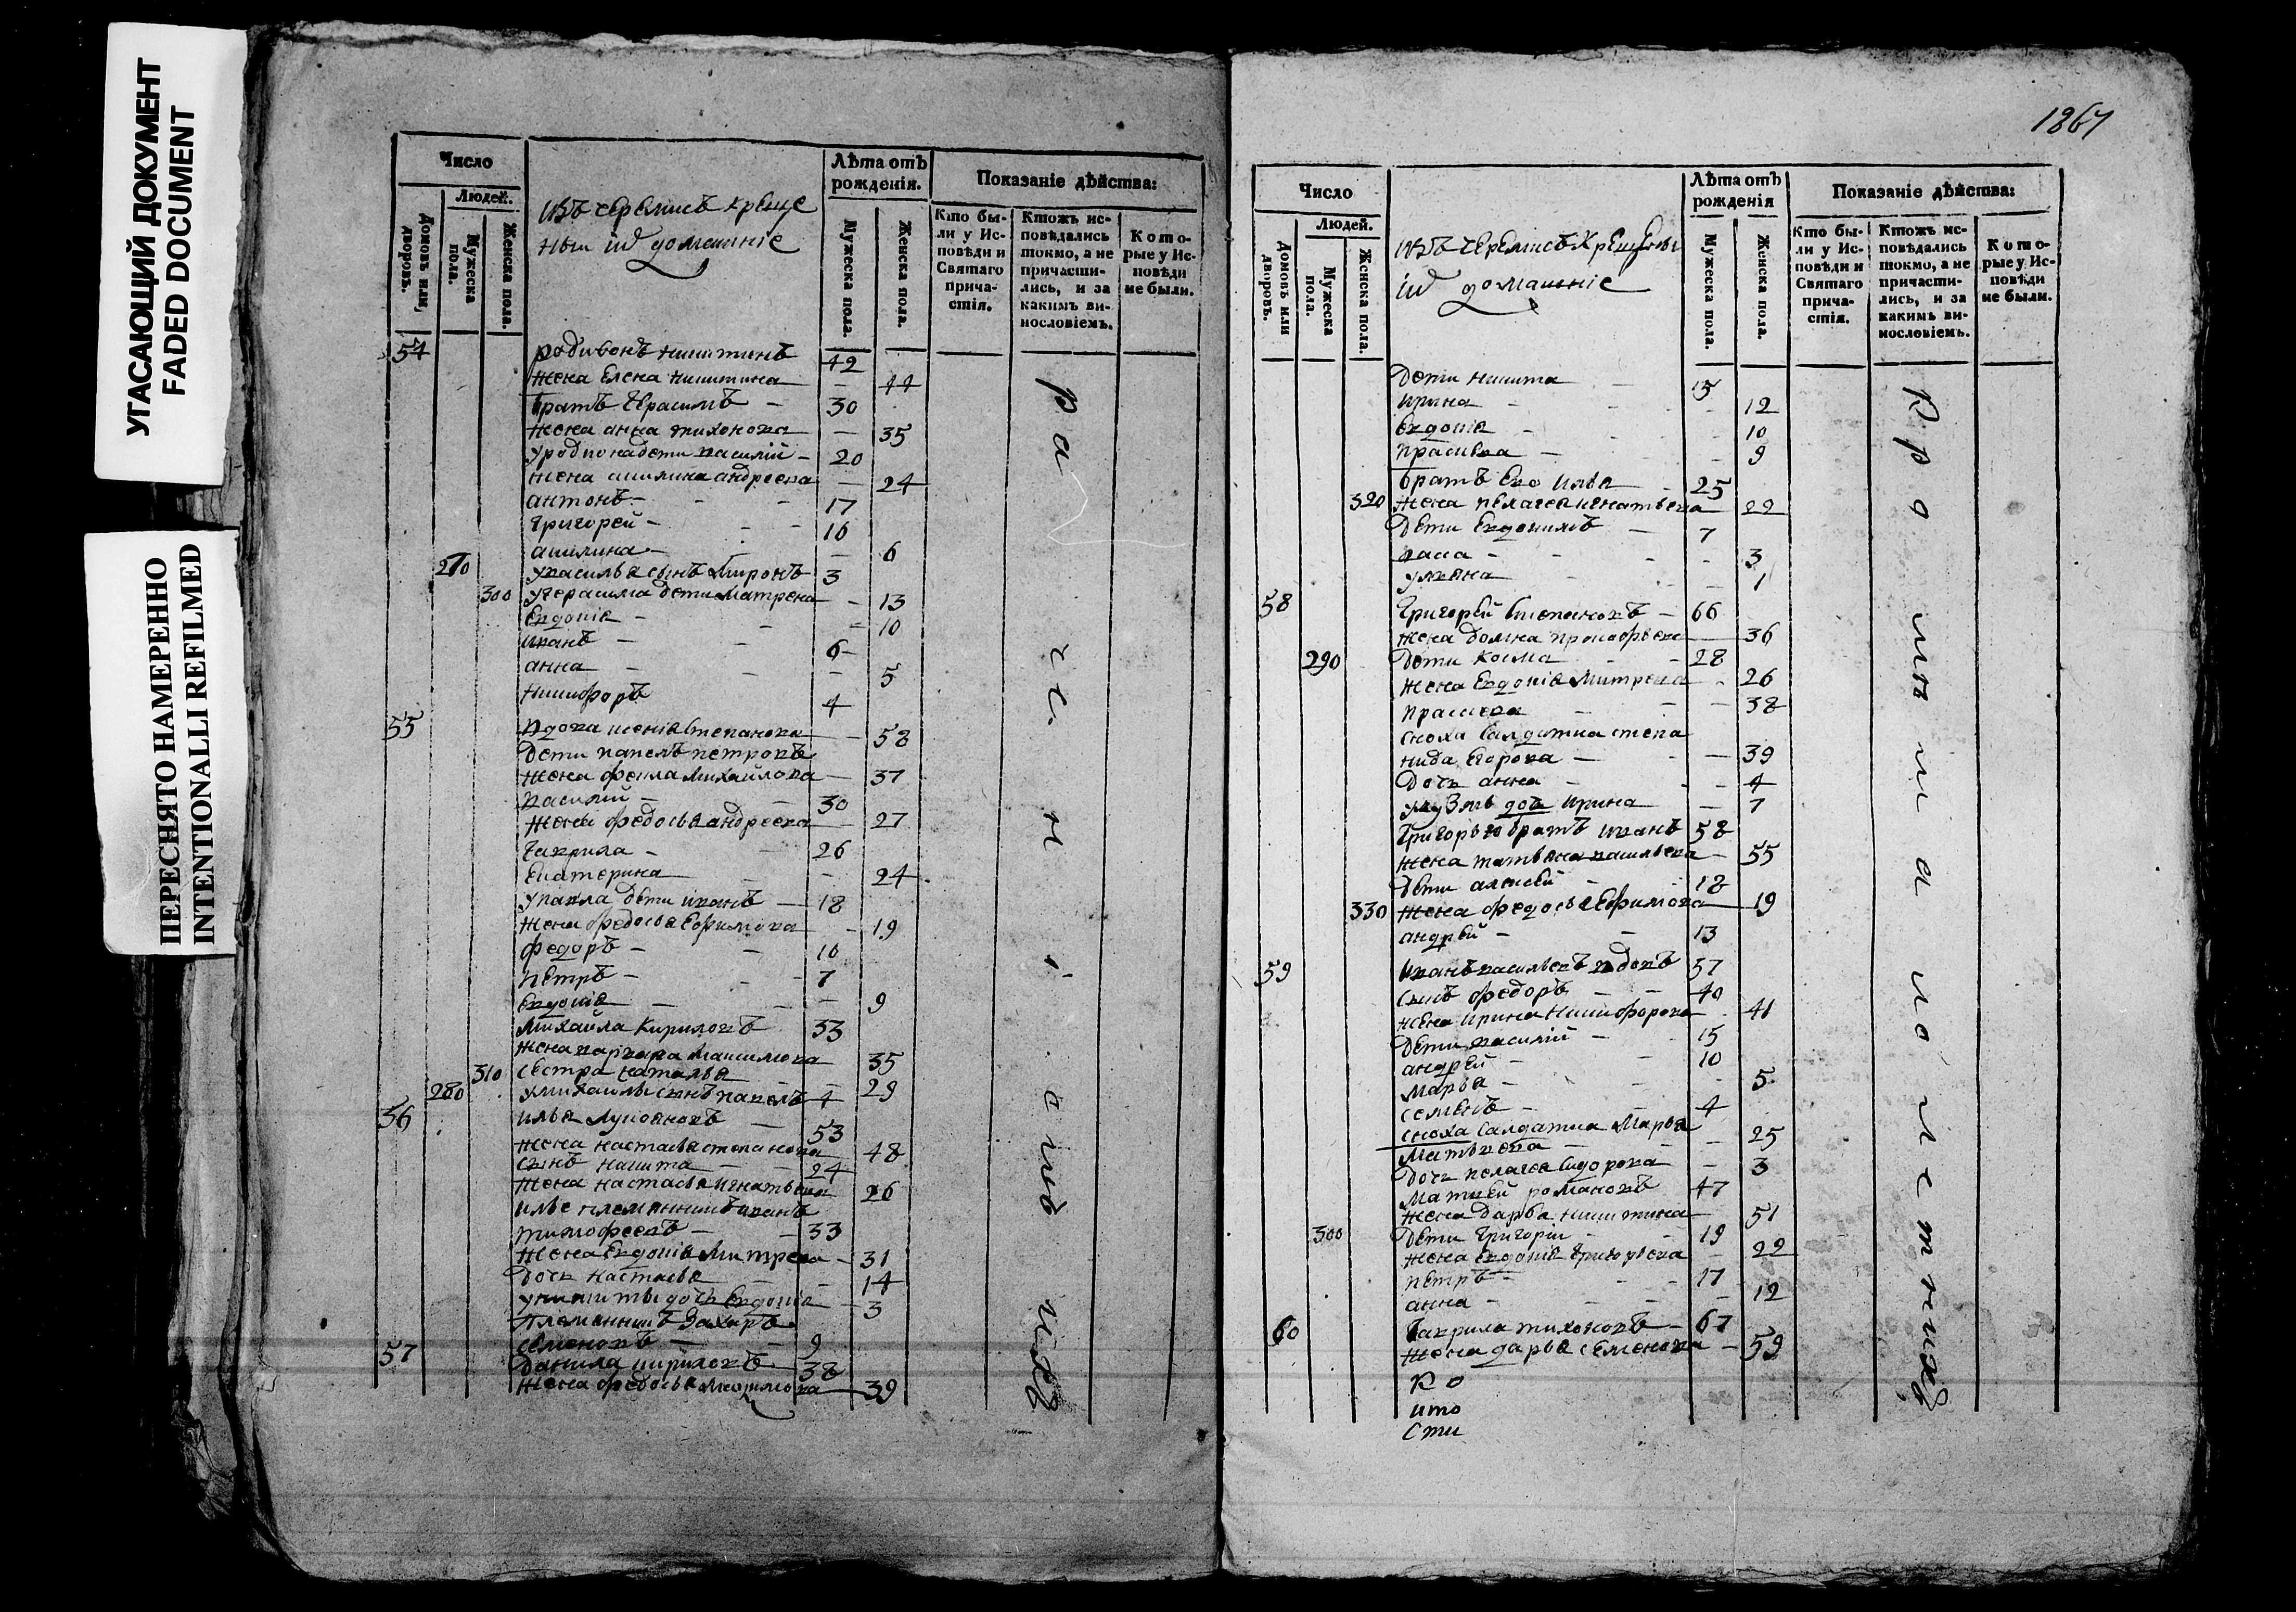 УГАСАЮЩИЙ ДОКУМЕНТ
FADED DOCUMENT
ПЕРЕСНЯТО НАМЕРЕННО
INTENTIONALLI REFILMED
Число
Людей.
Домовъ или дворовъ.
Мужеска пола.
Женска пола.
изъ черемисъ креще
ныи ихъ домашніе
Лѣта отъ рожденія.
Мужеска пола.
Женска пола.
Показаніе дѣйства:
Кто были у Исповѣди и Святаго причастія.
Ктожъ исповѣдались токмо, а не причастились, и за какимъ винословіемъ.
Которые у Исповѣди не были.
54 родивонъ никитинъ 42
жена Елена никитина 44
братъ Герасимъ 30
жена анна тихонова 35
у родивона дети василій 20
жена акилина андреева 24
антонъ 17
Григорей 10
акилина 6
270 у василья сынъ Миронъ 3
300 у герасима дети матрена 13
Евдокія 10
иванъ 6
анна 5
никифоръ 4
55 вдова ксенія степанова 58
дети павелъ петровъ
жена фекла михайлова 37
василій 30
жена федосья андреева 27
Гаврила 26
Екатерина 24
у павла дети иванъ 18
жена федосья Ефимова 19
федоръ 10
петръ 7
Евдокія 9
михаила Кириловъ 33
жена варвара Максимова 35
310 сестра наталья 29
280 у михаилы сынъ павелъ 4
56 илья лукояновъ 53
жена настасья степанова 48
сынъ никита 24
жена настасья игнатьева 26
илье племянникъ иванъ
тимофеевъ 33
жена Евдокія Митрева 31
дочь настасья 14
у никиты дочь Евдокія 3
племянникъ Захаръ
семеновъ 9
57 данила кириловъ 38
жена федосья максимова 39
1867
Число
Людей.
Домовъ или дворовъ.
Мужеска пола.
Женска пола.
изъ черемисъ крещены
ихъ домашніе
Лѣта отъ рожденія
Мужеска пола.
Женска пола.
Показаніе дѣйства:
Кто были у Исповѣди и Святаго причастія.
Ктожъ исповѣдались токмо, а не причастились, и за какимъ винословіемъ.
Которые у Исповѣди не были.
дети никита 15
ирина 12
Евдокія 10
прасковья 9
братъ Его илья 25
320 жена пелагея игнатьева 22
дети Евдокимъ 7
васа 3
ульяна 1
58 Григорей степановъ 66
жена домна прокофьева 36
290 дети косма 28
жена Евдокія Митрева 26
прасковья 38
сноха салдатка степа
нида Егорова 39
дочь анна 4
у кузмы дочь ирина 7
Григорью братъ иванъ 58
жена татьяна васильева 55
дети алексей 18
330 жена федосья Ефимова 19
андрей 13
59 иванъ васильевъ вдовъ 57
сынъ федоръ 40
жена ирина никифорова 41
дети василий 15
андрей 10
марья 5
семенъ 4
сноха салдатка марья
матвеева 25
дочь пелагея сидорова 3
матвей романовъ 47
жена дарья никитина 51
300 дети Григорій 19
жена Евдокія Григорьева 22
петръ 17
анна 12
60 Гаврила тихоновъ 67
жена дарья семенова 59